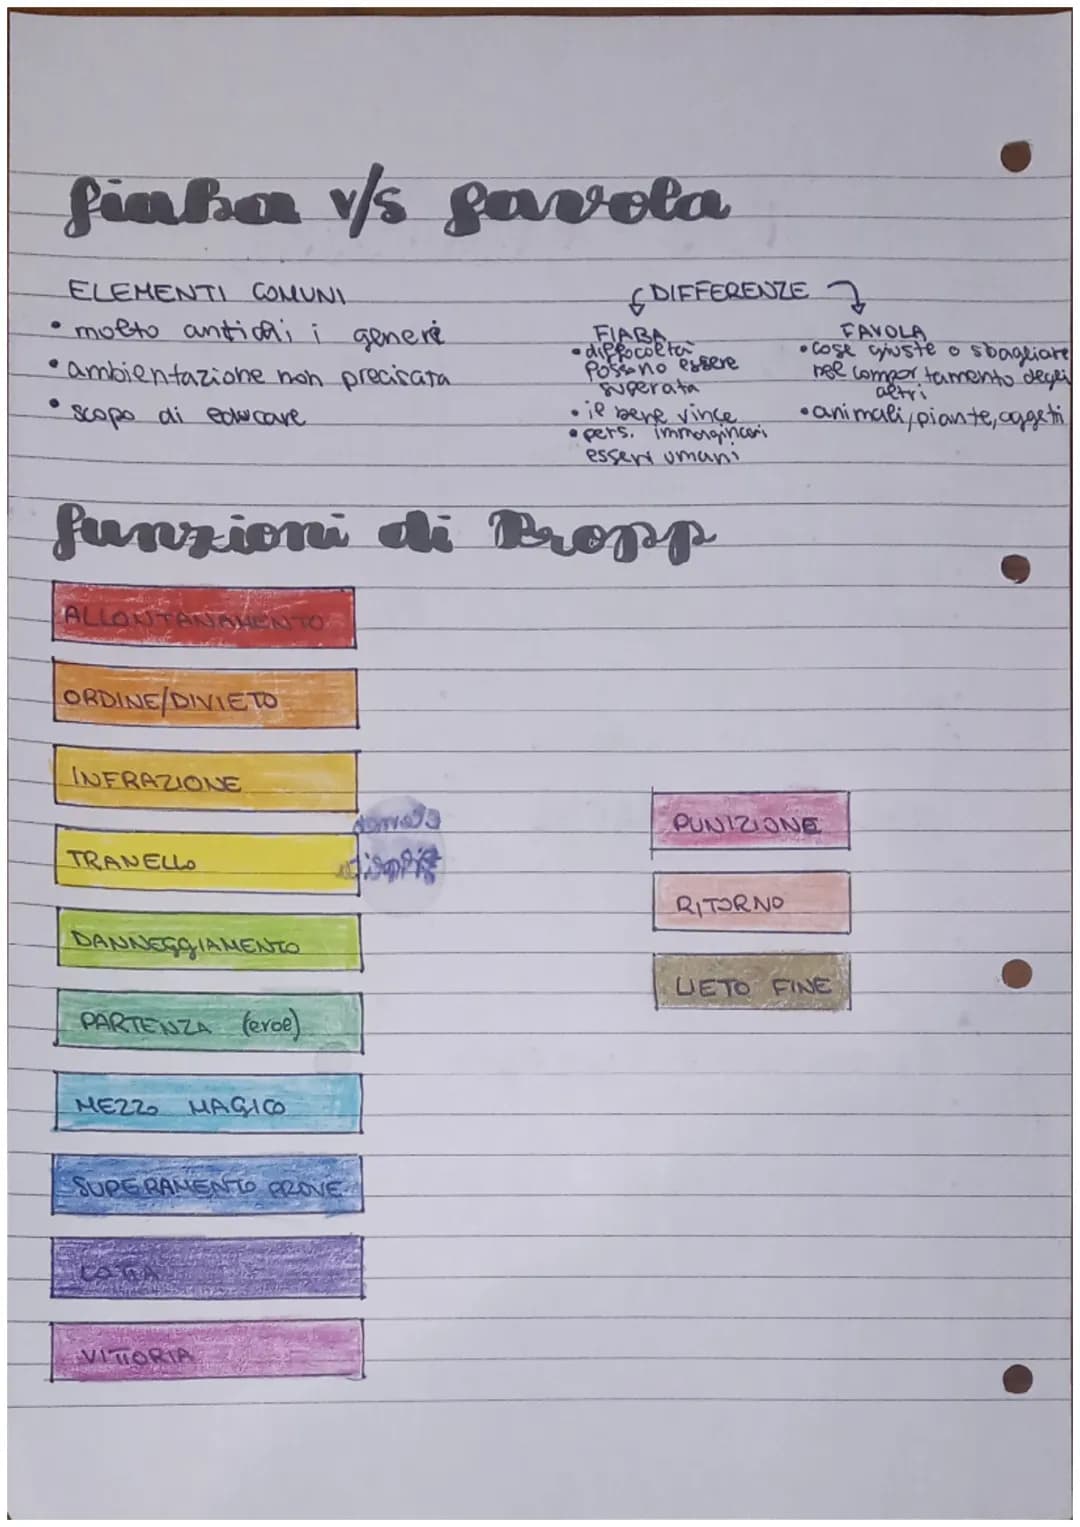 fiaba v/s favola
ELEMENTI COMUNI
• molto antichi i generi
• ambientazione non precisata
• scopo di educare
DIFFERENZE
FIABA
• difficoltà
possono essere
superata
• il bene vince
• pers. immaginari
esseri umani
FAVOLA
• cose giuste o sbagliate
nel comportamento degli
altri
• animali, piante, oggetti
funzioni di Propp
ALLONTANAMENTO
ORDINE/DIVIETO
INFRAZIONE
TRANELLO
DANNEGGIAMENTO
PARTENZA (eroe)
MEZZO MAGICO
SUPERAMENTO PROVE
LOTTA
VITTORIA
PUNIZIONE
RITORNO
LIETO FINE